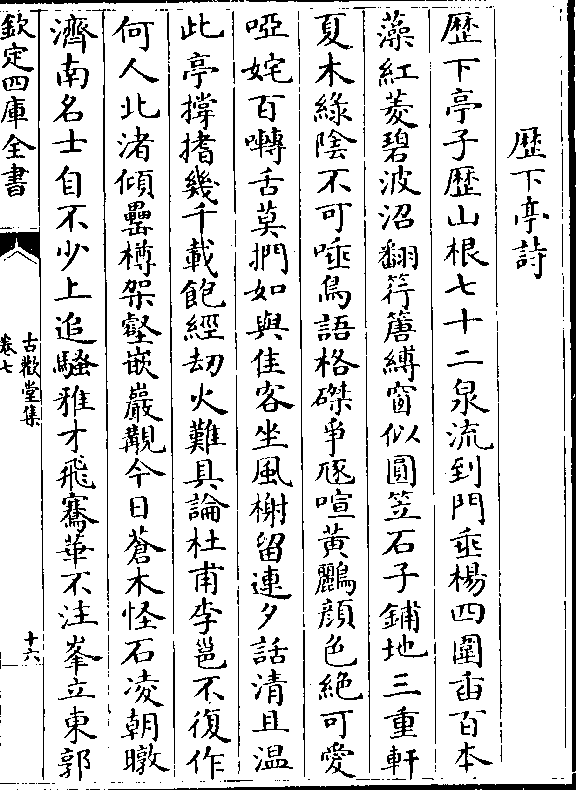 歴下亭詩
歴下亭子歴山根七十二泉流到門垂楊四圍畨百本
藻紅菱碧波沼翻筕簹縛窗似圓笠石子鋪地三重軒
夏木綠陰不可唾鳥語格磔爭豗喧黃鸝顔色絶可愛
啞姹百囀舌莫捫如與佳客坐風榭留連夕話清且温
此亭撐搘幾千載飽經劫火難具論杜甫李邕不復作
何人北渚傾罍樽架壑嵌巖觀今日蒼木怪石凌朝暾
濟南名士自不少上追騷雅才飛騫華不注峯立東郭
欽定四庫全書
古歡堂集
卷七
十六